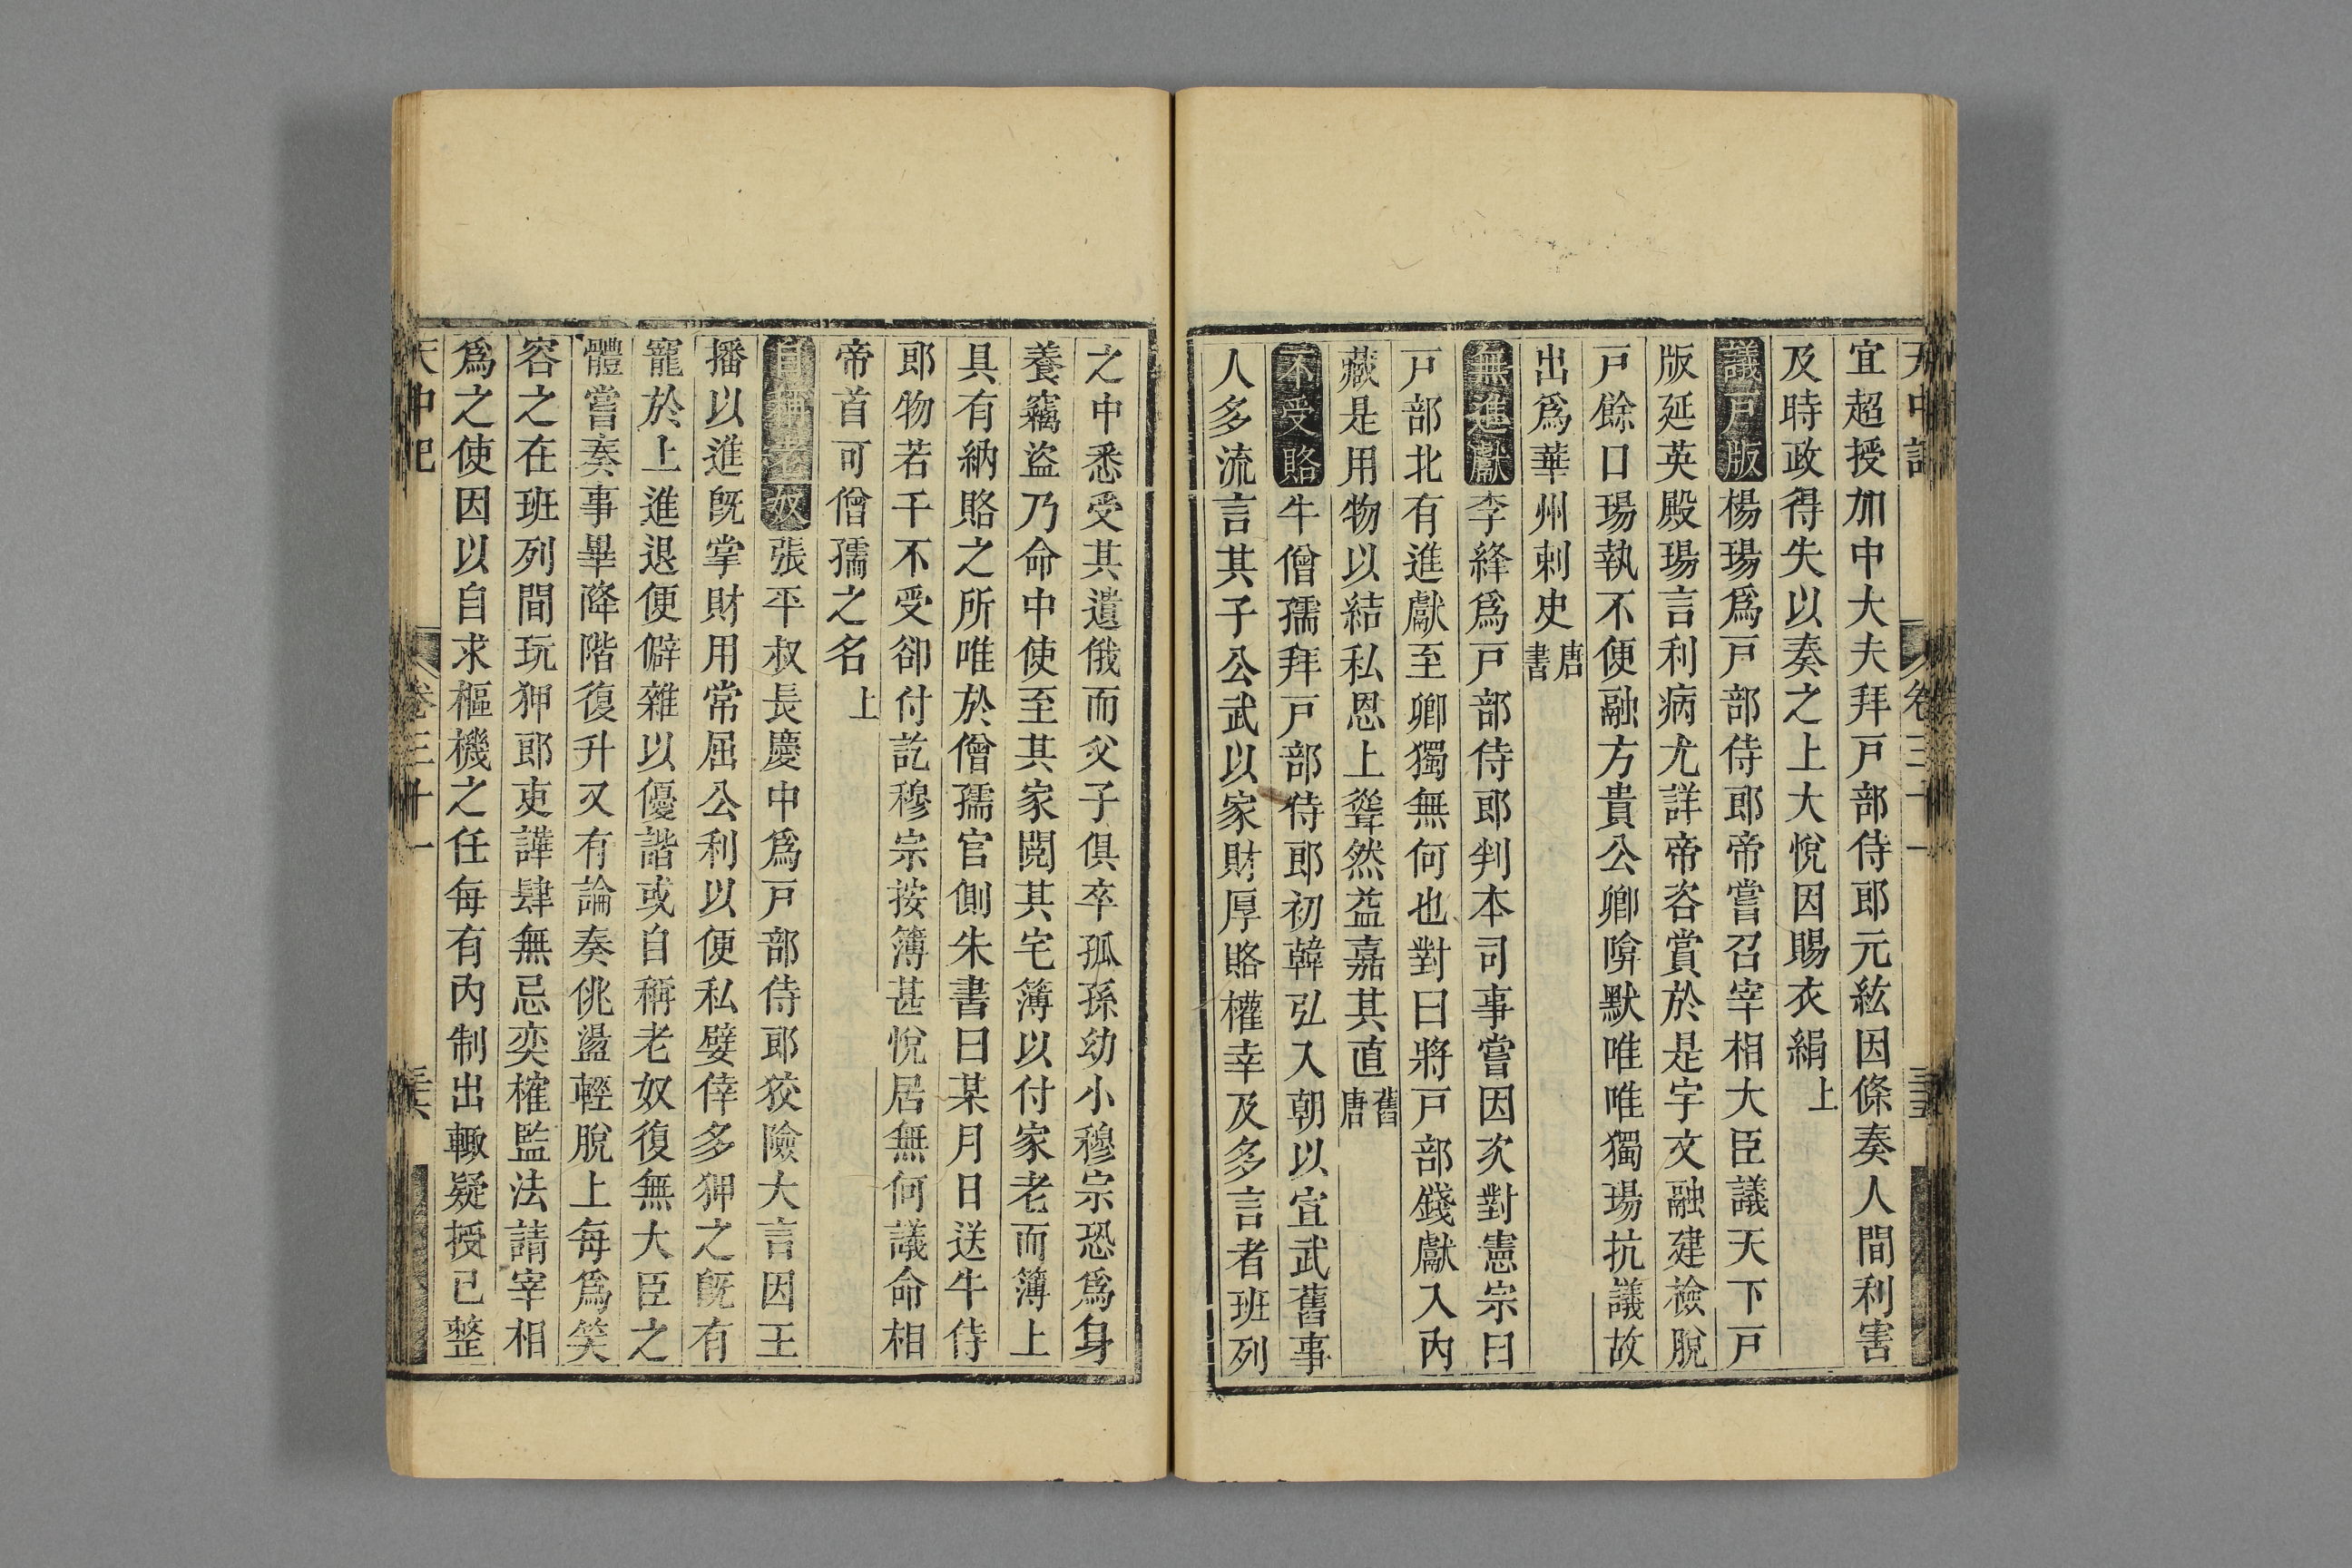 天中記 卷三十一 三十五
宜超授加中大夫拜戸部侍郎元紘因條奏人間利害
及時政得失以奏之上大悅因賜衣絹上
議戸版楊瑒爲戸部侍郎帝嘗召宰相大臣議天下戸
版延英殿瑒言利病尤詳帝咨賞於是宇文融建檢脫
戸餘口瑒執不便融方貴公卿隮默唯唯獨瑒抗議故
出爲華州刺史唐書
無進獻李絳爲戸部侍郎判本司事嘗因次對憲宗曰
戸部北有進獻至卿獨無何也對曰將戸部錢獻入内
藏是用物以結私恩上聳然益嘉其直舊唐
不受賂牛僧孺拜戸部侍郎初韓弘入朝以宣武舊事
人多流言其子公武以家財厚賂權幸及多言者班列
之中悉受其遺俄而父子俱卒孤孫幼小穆宗恐爲身
養竊盜乃命中使至其家閱其宅簿以付家老而簿上
具有納賂之所唯於僧孺官側朱書曰某月日送牛侍
郎物若干不受卻付訖穆宗按簿甚悅居無何議命相
帝首可僧孺之名上
自稱老奴張平叔長慶中爲戸部侍郎狡險大言因王
播以進旣掌財用常屈公利以便私嬖倖多狎之旣有
寵於上進退便僻雜以優諧或自稱老奴復無大臣之
體嘗奏事畢降階復升又有論奏佻盪輕脫上每爲笑
容之在班列間玩狎郎吏譁肆無忌奕榷監法請宰相
爲之使因以自求樞機之任每有內制出輙疑授已整
天中記 卷三十一 三十六